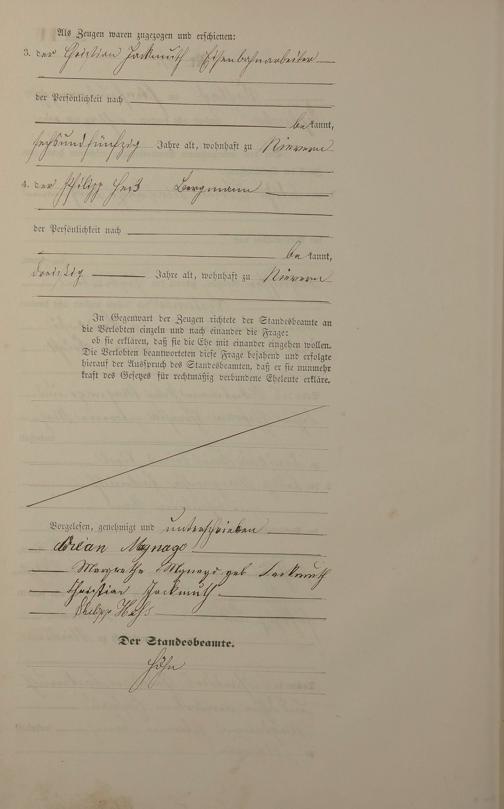 Als Zeugen waren zugezogen und erschienen:
3. der Christian Jackmuth Eisenbahnarbeiter
der Persönlichkeit nach
bekannt,
sechsundfünfzig Jahre alt, wohnhaft zu Nievern
4. der Philipp Heß Bergmann
der Persönlichkeit nach
bekannt,
dreißig Jahre alt, wohnhaft zu Nievern
In Gegenwart der Zeugen richtete der Standesbeamte an
die Verlobten einzeln und nach einander die Frage:
ob sie erklären, daß sie die Ehe mit einander eingehen wollen.
Die Verlobten beantworteten diese Frage bejahend und erfolgte
hierauf der Ausspruch des Standesbeamten, daß er sie nunmehr
kraft des Gesetzes für rechtmäßig verbundene Eheleute erkläre.
Vorgelesen, genehmigt und unterschrieben
Mynago
Margretha geb Jackmuth
Christian Jackmuth
Philipp Heß
Der Standesbeamte.
Höhn